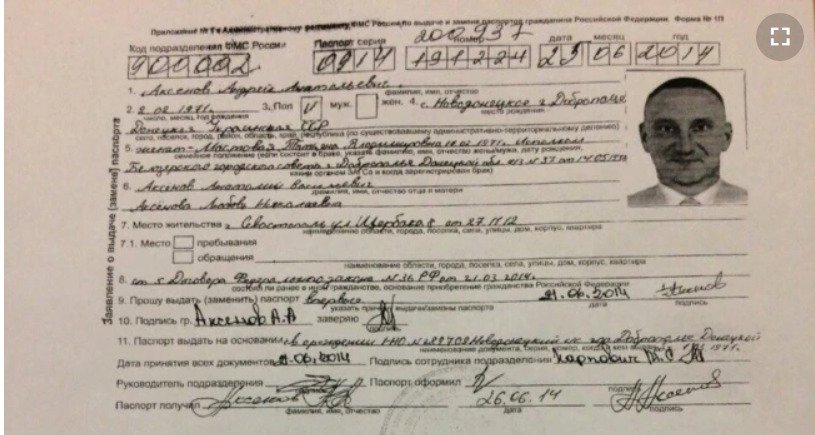 Приложение № 1 к Административному регламенту ФМС России по выдаче и замене паспортов гражданина Российской Федерации. Форма № 1П
200937
Код подразделения ФМС России Паспорт серия номер дата месяц год
900002 0914 191224 23 06 2014
1. Аксенов Андрей Анатольевич
фамилия, имя, отчество
2. 2.02.1971г. 3. Пол V муж. жен. 4. с. Новодонецкое г. Доброполье
число, месяц, год рождения место рождения
Донецкая Украинская ССР
село, поселок, город, район, область, край, республика (по существовавшему административно-территориальному делению)
5. женат - Мостовая Татьяна Владимировна 10.02.1971г. Исполком
семейное положение (если состоит в браке, указать фамилию, имя, отчество жены/мужа, дату рождения,
Белозерского городского совета г. Доброполья Донецкой обл. а/з N 37 от 14.05
каким органом ЗАГСа и когда зарегистрирован брак)
6. Аксенов Анатолий Васильевич
фамилия, имя, отчество отца и матери
Аксенова Любовь Николаевна
7. Место жительства г. Севастополь ул. Щербака 8 от 27.11.12
наименование области, города, поселка, села, улицы, дом, корпус, квартира
7.1. Место пребывания
обращения
наименование области, города, поселка, села, улицы, дом, корпус, квартира
8. ст 5 Договора Федерального закона N 36 РФ от 21.03.2014г.
состоял ли ранее в ином гражданстве, основание приобретения гражданства Российской Федерации
9. Прошу выдать (заменить) паспорт впервые 21.06.2014
указать причину выдачи/замены паспорта дата подпись
10. Подпись гр. Аксенов А.А заверяю
подпись
11. Паспорт выдать на основании св. о рождении Новодонецкий Доброполье Донецкой
наименование документа, серия, номер, когда и кем выдан
1971г.
Дата принятия всех документов 21.06.2014 Подпись сотрудника подразделения Карпович
Руководитель подразделения Паспорт оформил
подпись подпись
Паспорт получил Аксенов 26.06.14 Аксенов
фамилия, имя, отчество дата подпись
Заявление о выдаче (замене) паспорта